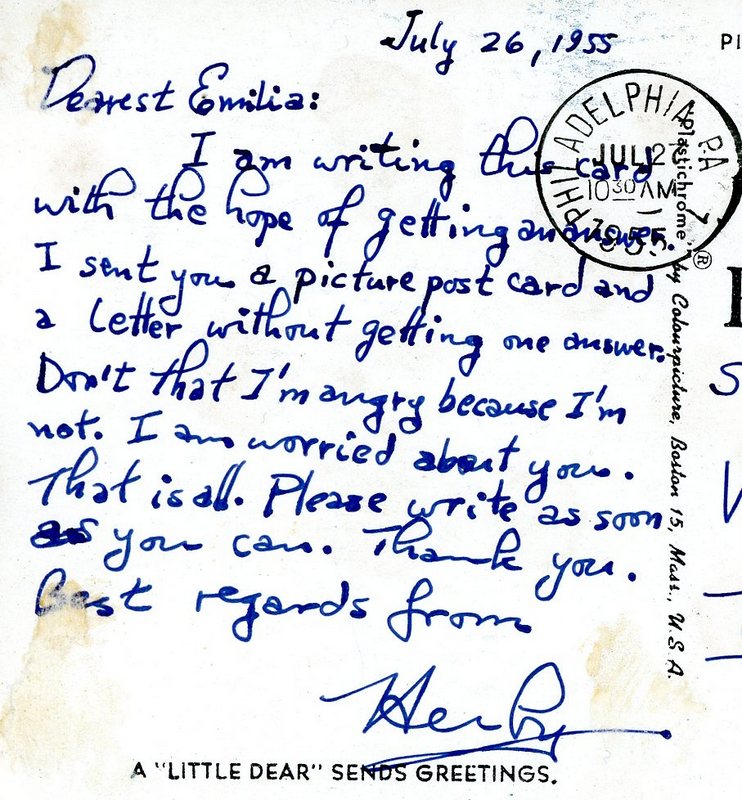 July 26, 1955
PI
Dearest Emilia:
I am writing this card
with the hope of getting an answer.
I sent you a picture post card and
a letter without getting one answer.
Don't that I'm angry because I'm
not. I am worried about you.
That is all. Please write as soon
as you can. Thank you.
Best regards from
Herby
A "LITTLE DEAR" SENDS GREETINGS.
PHILADELPHIA, PA
JUL 27
10 30 AM
1955
7
Plastichrome ® by Colourpicture, Boston 15, Mass., U.S.A.